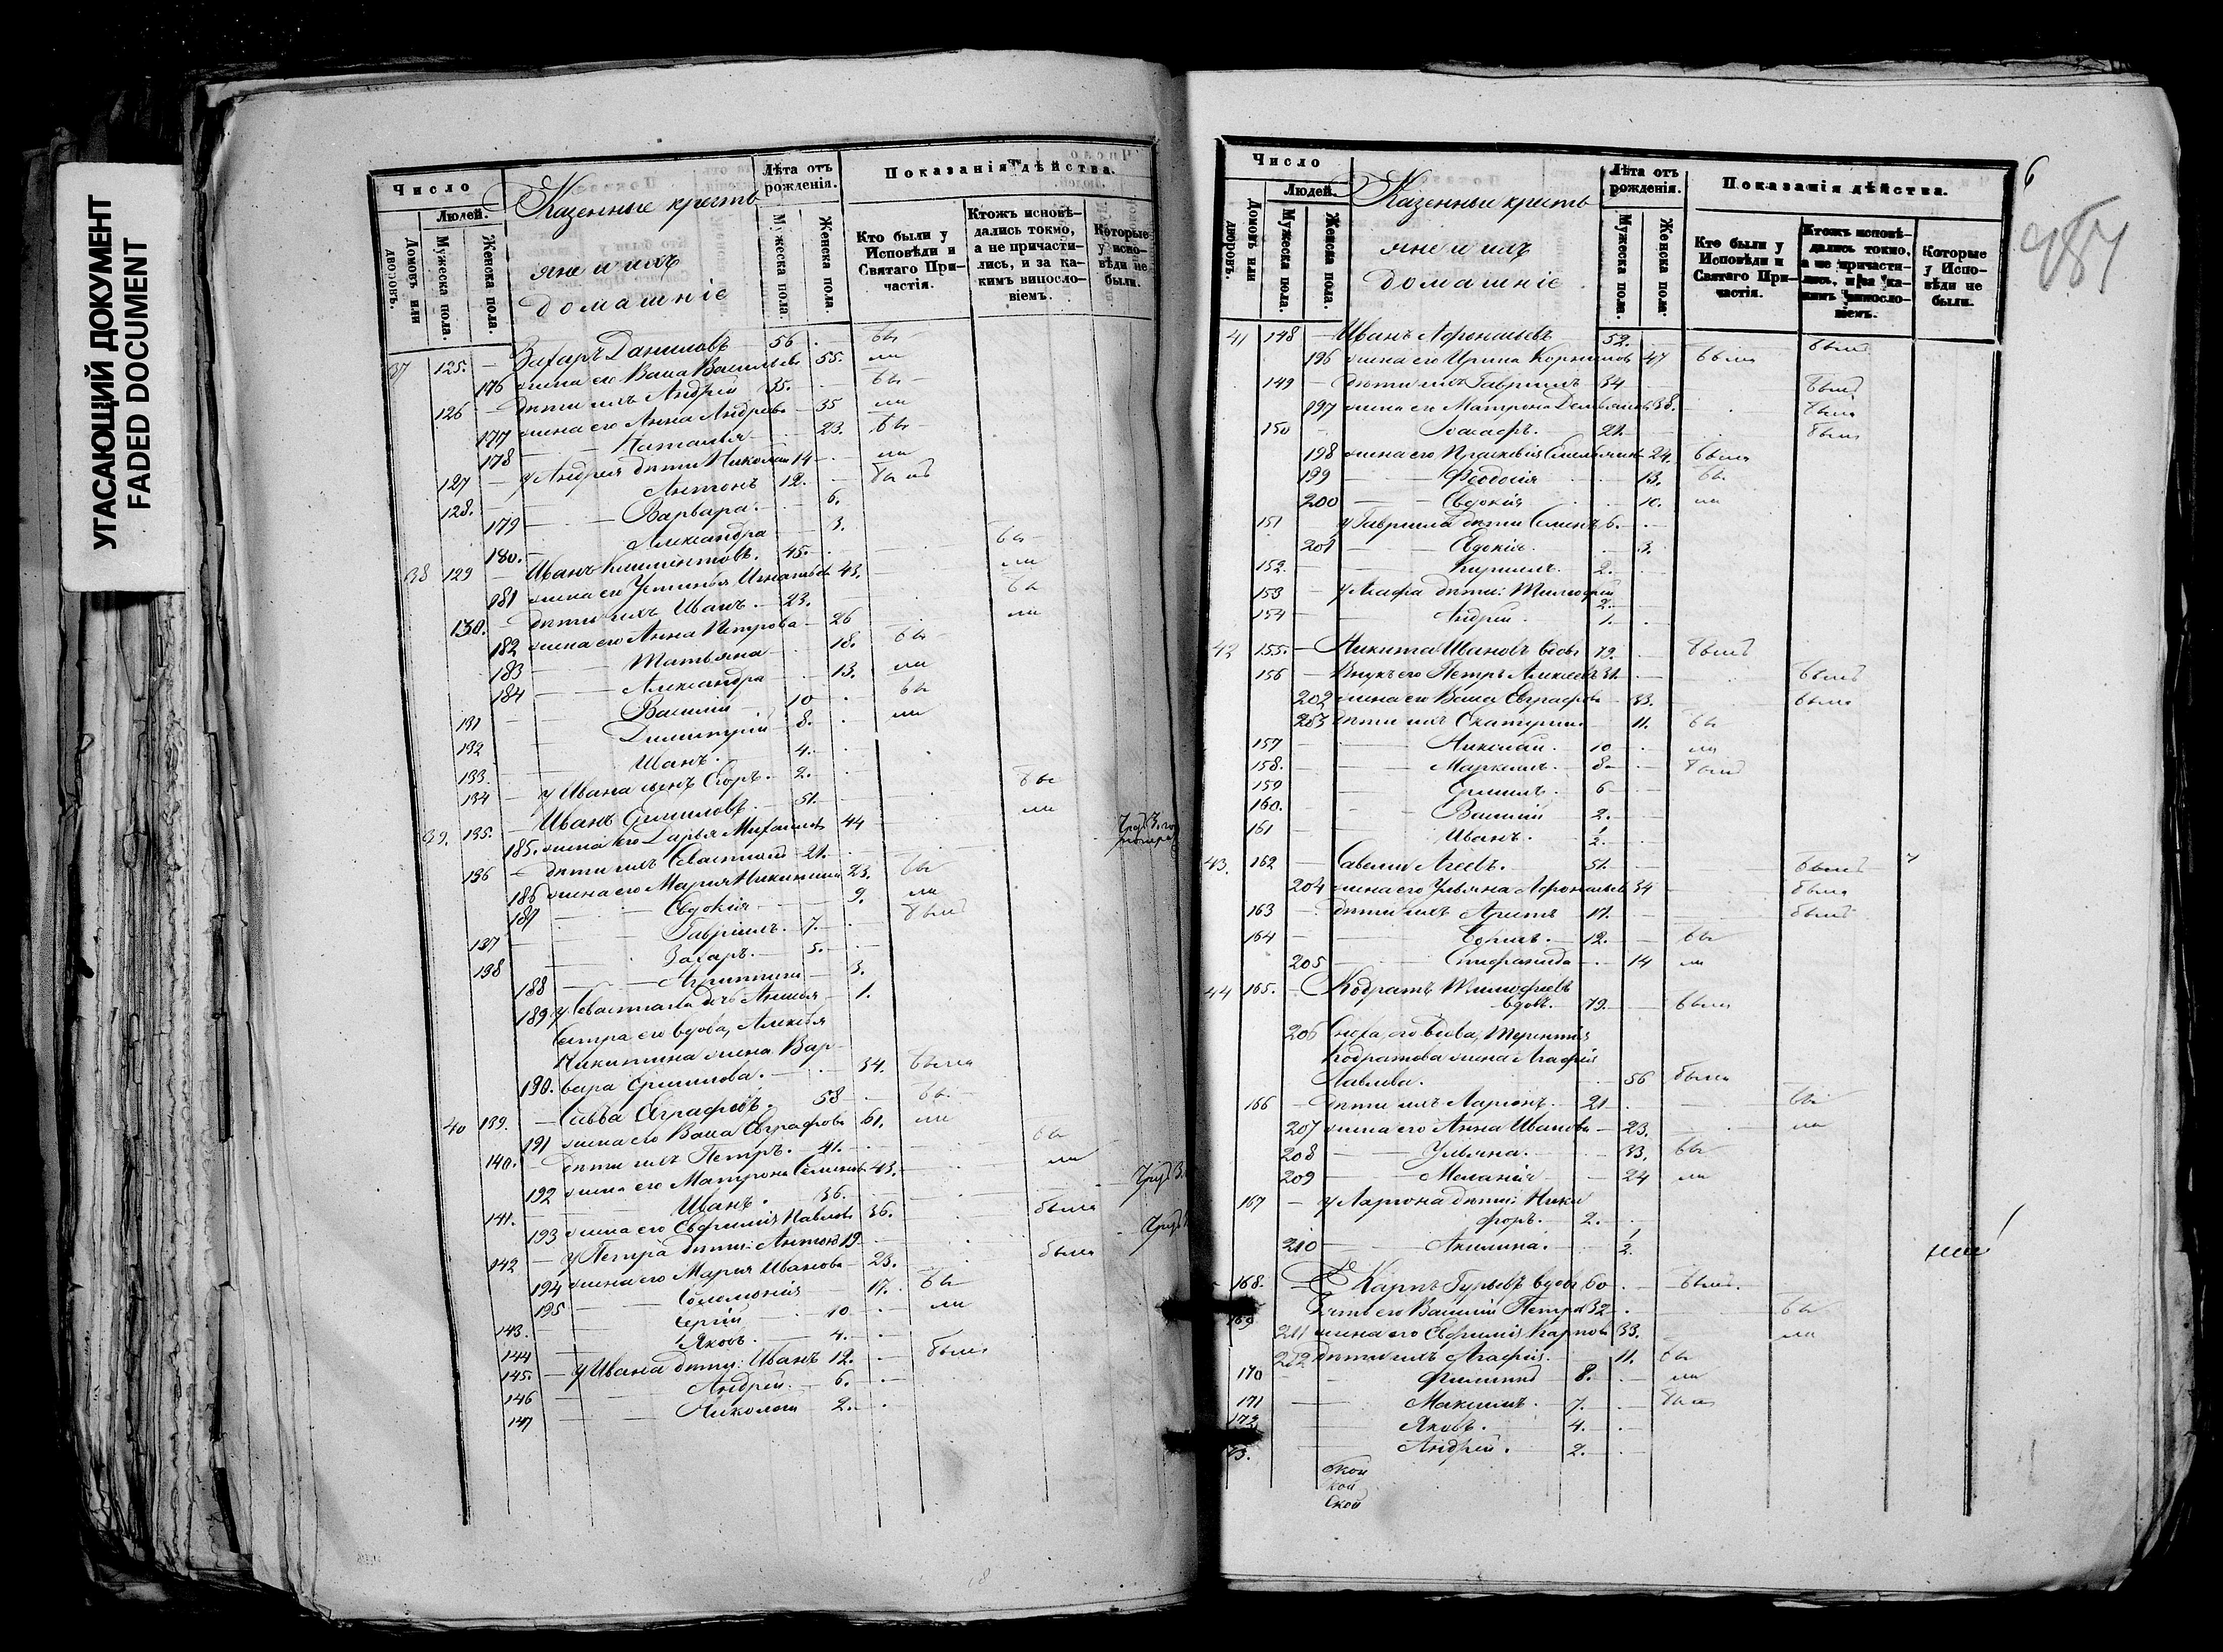 УГАСАЮЩИЙ ДОКУМЕНТ
FADED DOCUMENT
Число
Людей.
Домовъ или дворовъ.
Мужеска пола.
Женска пола.
Казенные кресть
яне и ихъ
домашніе
Лѣта отъ рожденія.
Мужеска пола.
Женска пола.
Показанія дѣйства.
Кто были у Исповѣди и Святаго При-частія.
Ктожъ исповѣ-дались токмо, а не причасти-лись, и за ка-кимъ винословіемъ.
Которые у испо-вѣди не были.
37 125. — Захаръ Даниловъ — 56 . бы
176 жена его Васса Васильева 55. ли
126 — дѣти ихъ Андрей 35. — бы —
177 жена его Анна Андреева — 35 ли
178 — Наталья — 23. бы —
127 — у Андрея дѣти Николай 14 — ли
128. — Антонъ 12. — былъ
179 — — Варвара . — 6.
180. — Александра — 3.
38 129 — Иванъ Климентовъ. 45. — бы —
181 жена его Устинья Игнатьева 43. ли
130. — дѣти ихъ Иванъ. — 23. — бы
182 жена его Анна Петрова — 26 ли
183 — — Татьяна — 18. бы
184 — — Александра — 13. ли
131 — — Василій — 10 . бы
132 — — Димитрій — 8. . ли
133. — — Иванъ. 4. .
134 — у Ивана сынъ Егоръ. — 2. .
39. 135. — Иванъ 51. — бы
185. жена его Дарья Михайлова 44 ли
136 — дѣти ихъ Савастьянъ — 21. —
186 жена его Марья Никитина 23. бы
187 — — Евдокія — 9. ли
137 — — Гавріилъ. 7. . былъ
138 — — Захаръ. — 5. .
188 — — Агрипина — 3.
189. у Севастьяна дчь Анисья — 1.
Сестра его вдова, Алексѣя
Никитина жена Вар-
190. вара — 34. была
40 139. — Савва Евграфовъ. 58 — бы —
191 жена его Васса Евграфова 61. ли
140. — дѣти ихъ Петръ. 41. — бы
192 жена его Матрона Семенова 43. ли
141. — Иванъ. 36. —
193 жена его Евфимія Павлова 36. — была
142 — у Петра дѣти: Антонъ 19. —
194 жена его Марья Иванова — 23. была
195 — — Соломонія — 17. бы
143. — Сергій — 10 . ли
144 — Яковъ. — 4. .
145. — у Ивана дѣти: Иванъ 12. — былъ
146 — — Андрей. — 6. . —
147 — — Николай 2. .
6
487
Число
Людей.
Домовъ или дворовъ.
Мужеска пола.
Женска пола.
Казенные кресть
яне и ихъ
домашніе
Лѣта отъ рожденія.
Мужеска пола.
Женска пола.
Показанія дѣйства.
Кто были у Исповѣди и Святаго При-частія.
Ктожъ исповѣ-дались токмо, а не причасти-лись, и за ка-кимъ винословіемъ.
Которые у Испо-вѣди не были.
41 148 — Иванъ Афонасьевъ 52. — былъ
196 жена его Ирина Корнилова 47 была
149 — дѣти ихъ Гавріилъ — 34 — былъ
197 жена его Матрона 38. была
150 — 21. — былъ
198 жена его Прасковія 24. была
199 — — Феодосія — 13. бы
200 — — Евдокія — 10. ли
151 у Гавріила дѣти Семенъ 6. —
201 — — Евдокія. — 3.
152. — Кириллъ. — 2. .
153 — у дѣти: Тимофей 2. —
154 — Андрей. 1. .
42 155. — Никита Ивановъ вдовъ 79. былъ
156 — Внукъ его Петръ Алексеевъ 31. былъ
202 жена его Васса Евграфова — 33. была
203 дѣти ихъ Екатерина — 11. бы
157 — — Николай. — 10 — ли
158. — — Маркеллъ. — 8 — былъ
159 — — 6 —
160. — — Василій 2. —
161 — Иванъ. 1/2. —
43. 162 — Савелій Агеевъ. — 51. — былъ
204 жена его Ульяна Афонасьева 34 — была
163 — дѣти ихъ 17. — былъ
164 — — 12. — бы
205 — — Стефанида — 14 ли
44 165. — Кодратъ Тимофеевъ
вдовъ. — 79. — былъ
206 Сноха его вдова, Терентія
Кодратова жена Агафія
Павлова. — 56 была
166 — дѣти ихъ Ларіонъ. — 21 . бы
207 жена его Анна Иванова — 23. ли
208 — — Ульяна. — 33. бы
209 — — Меланія — 24 ли
167 — у Ларіона дѣти: Ники
форъ. — 2. .
210 — — Акилина. — 1/2.
168. — Карпъ Гурьевъ вдовъ 60 . — былъ.
169 Зять его Василій Петровъ 32 . бы
211 жена его Евфимія Карпова 33. ли
212 дѣти ихъ Агафія. — 11. бы
170 — Филиппъ — 8. . ли
171 — — Максимъ. — 7. . былъ
172 — Яковъ. — 4. .
73. — Андрей. — 2. .